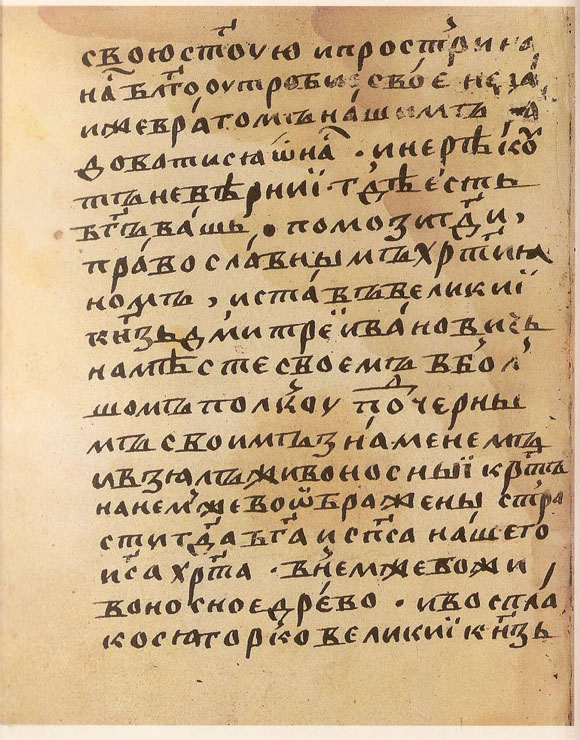 свою ст҃ую и простри на
на́ бл҃гоутробие свое́ не да́
иже вра́гомъ на́шимъ
доватися ѡ на҃ . и не рѣкꙋ
тъ невѣрниї гдѣ е́сть
бг҃ъ ва́шь . помози гд҃и,
пра́восла́внымъ хрт҃ия
номъ, и ста́въ великиї
кн҃зь дмитреї ива́новичь
на мѣсте своемъ в бо́л
шомъ полкоу по черны
мъ своимъ зна́менемъ
и взялъ живоносныї крт҃ъ
на немже воѡбражены стра
сти гд҃а бг҃а и сп҃са на́шего
иі҃са хрт҃а . в не́мже во жи
воносное дре́во . и воспла́
кося горко великиї кн҃зь